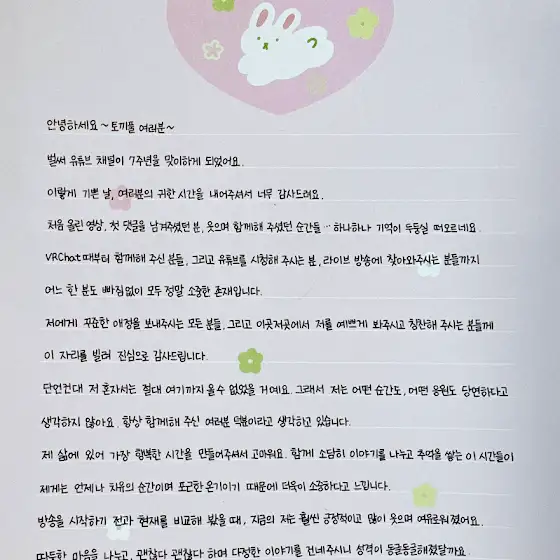 안녕하세요 ~ 토끼풀 여러분 ~
벌써 유튜브 채널이 7주년을 맞이하게 되었어요.
이렇게 기쁜 날, 여러분의 귀한 시간을 내어주셔서 너무 감사드려요.
처음 올린 영상, 첫 댓글을 남겨주셨던 분, 웃으며 함께해 주셨던 순간들 … 하나하나 기억이 두둥실 떠오르네요.
VRChat때부터 함께해 주신 분들, 그리고 유튜브를 시청해 주시는 분, 라이브 방송에 찾아와주시는 분들까지
어느 한 분도 빠짐없이 모두 정말 소중한 존재입니다.
저에게 꾸준한 애정을 보내주시는 모든 분들, 그리고 이곳저곳에서 저를 예쁘게 봐주시고 칭찬해 주시는 분들께
이 자리를 빌려 진심으로 감사드립니다.
단언컨대 저 혼자서는 절대 여기까지 올 수 없었을 거예요. 그래서 저는 어떤 순간도, 어떤 응원도 당연하다고
생각하지 않아요. 항상 함께해 주신 여러분 덕분이라고 생각하고 있습니다.
제 삶에 있어 가장 행복한 시간을 만들어주셔서 고마워요. 함께 소담히 이야기를 나누고 추억을 쌓는 이 시간들이
제게는 언제나 치유의 순간이며 포근한 온기이기 때문에 더욱이 소중하다고 느낍니다.
방송을 시작하기 전과 현재를 비교해 봤을 때, 지금의 저는 훨씬 긍정적이고 많이 웃으며 여유로워졌어요.
따뜻한 마음을 나누고, 괜찮다 괜찮다 하며 다정한 이야기를 건네주시니 성격이 둥글둥글해졌달까요.